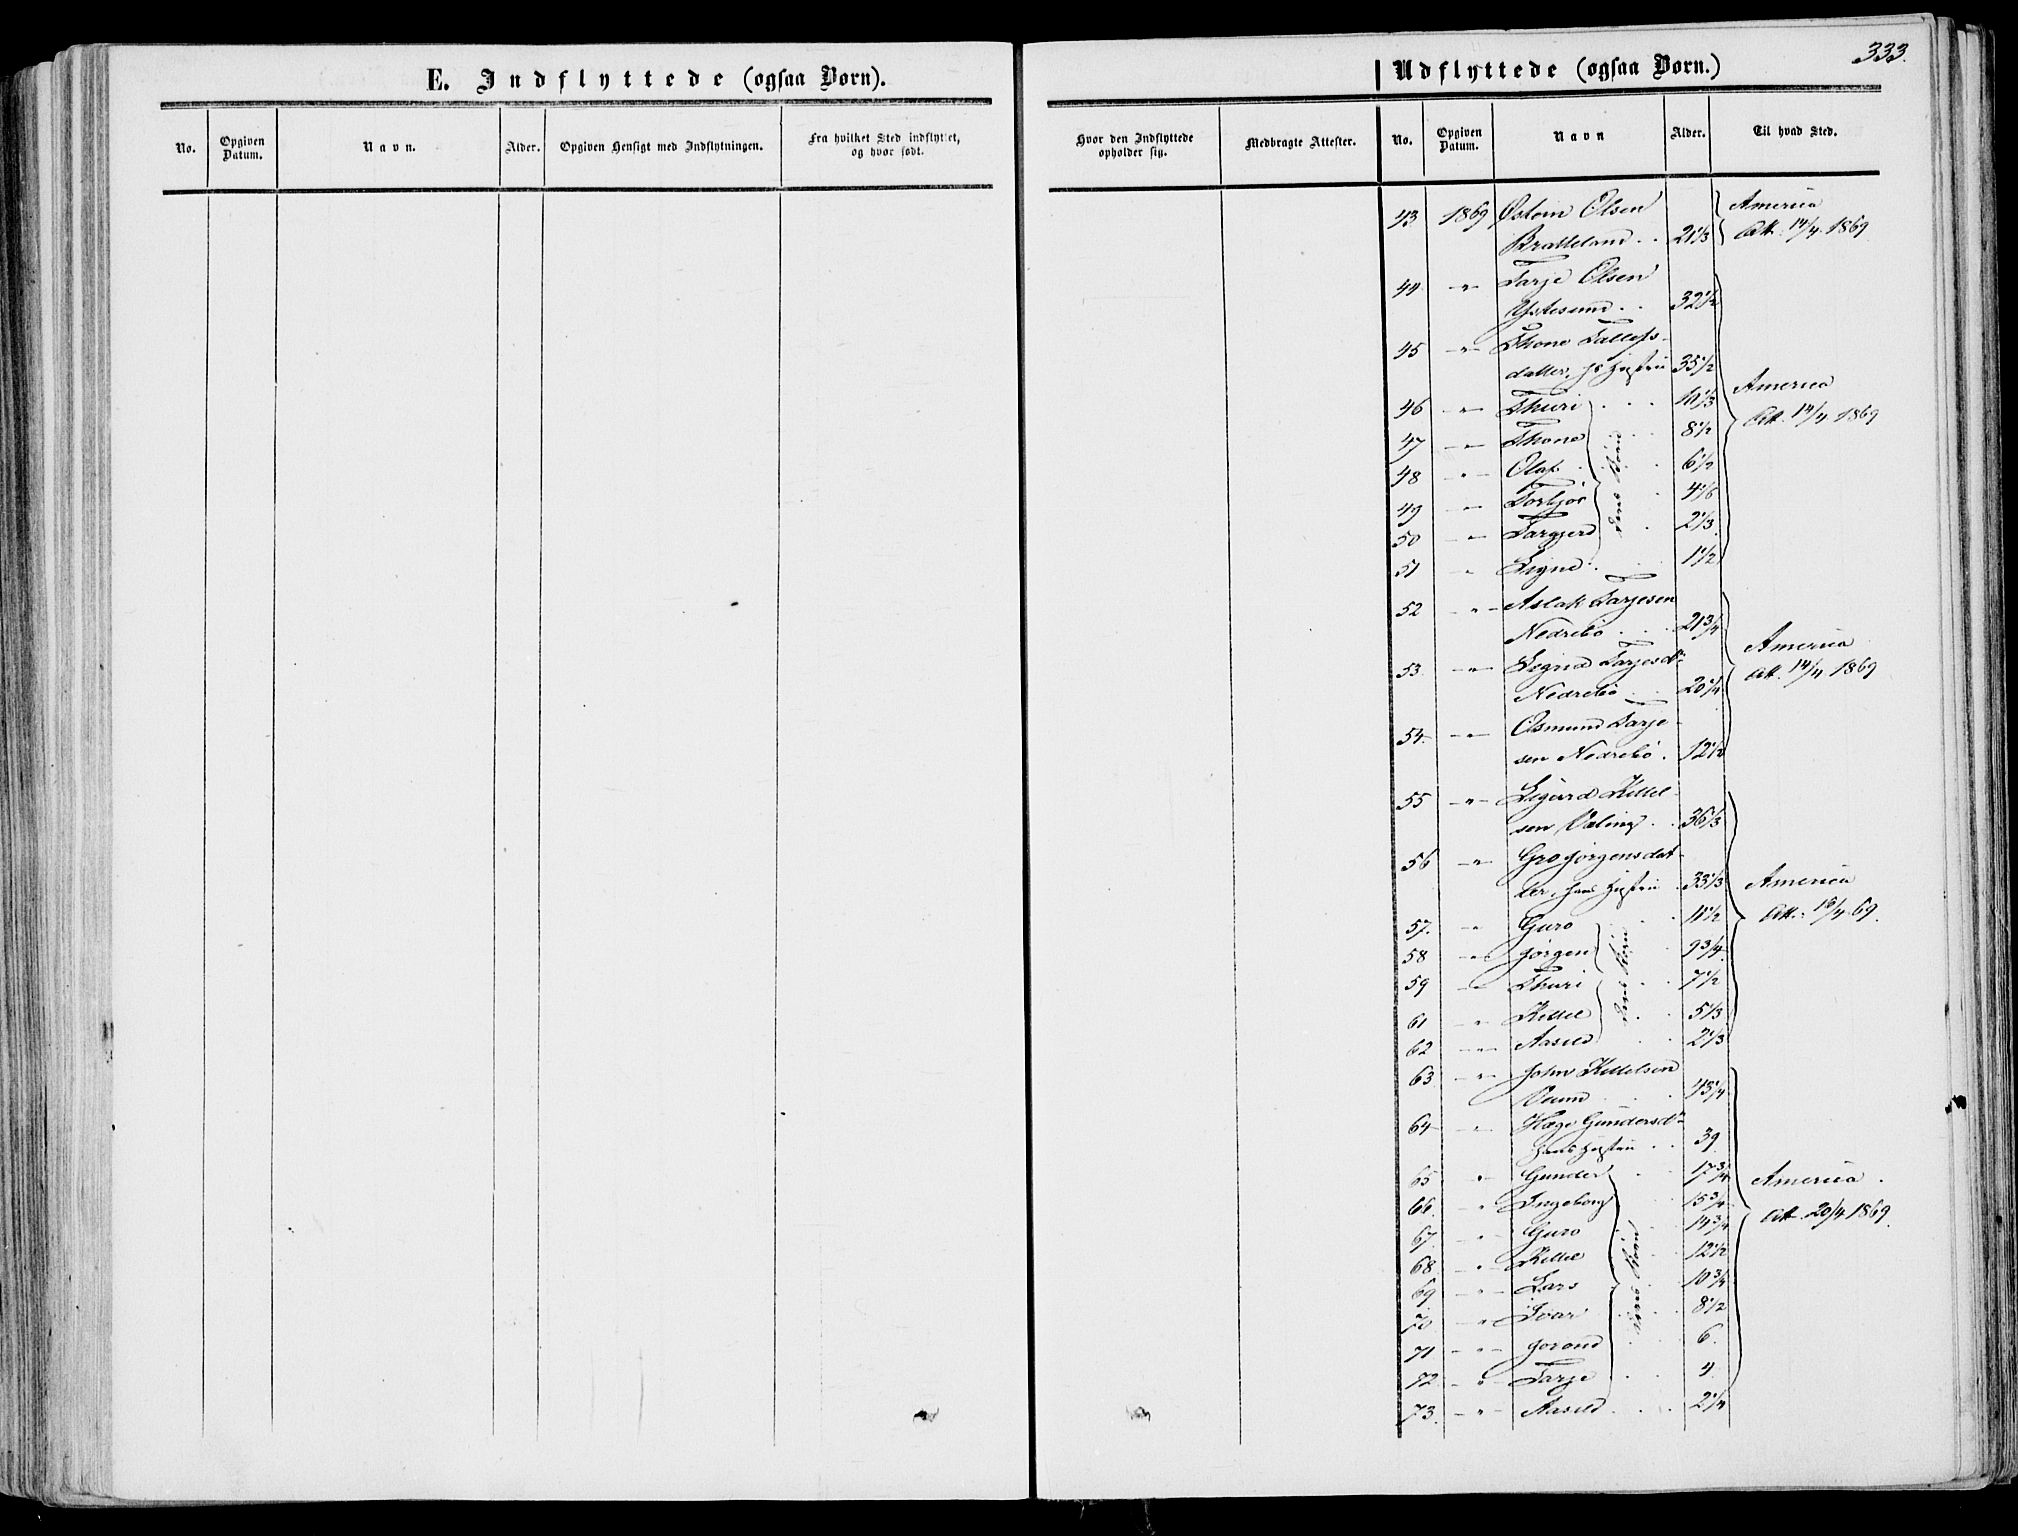 333.
E. Indflyttede (ogsaa Born).
Udflyttede (ogsaa Born.)
No. Opgiven Datum. Navn. Alder. Opgiven Hensigt med Indflytningen. Fra hvilket Sted indflyttet, og hvor født. Hvor den Indflyttede opholder sig. Medbragte Attester. No. Opgiven Datum. Navn Alder. Til hvad Sted.
43 1869 Østein Olsen America
Bratteland . . 21 1/3 Att. 14/4 1869
44 -"- Tarje Olsen
Ystesund . . 32 1/2
45 -"- Thone Tallefs-
datter, hs Hustru 35 1/2 America
46 -"- Thuri . . . 10 1/3 Att. 14/4 1869
47 -"- Thone . . 8 1/2
48 -"- Olaf . . 6 1/2
49 -"- Torbjør . 4 1/6
50 -"- Targjerd . 2 1/3
51 " Signe . . 1 1/2
deres Børn
52 -"- Aslak Tarjesen
Nedrebö . . . 21 3/4 America
53. -"- Signe Tarjesdr Att. 14/4 1869
Nedrebö . . 20 1/4
54. -"- Osmund Tarje-
sen Nedrebö . 12 1/2
55 -"- Sigurd Kittel-
sen Valing . . 36 1/3
56 -"- Gro Jörgensdat-
ter, hans Hustru . 33 1/3 America
57. -"- Guro . . 11 1/2 Att.: 16/4 69.
58 -"- Jörgen . 9 3/4
59 -"- Thuri . . 7 1/2
61 -"- Kittel . . 5 1/3
62 -"- Aasild . . 2 1/3
deres Børn
63 -"- John Kittelsen
Veum . . . 43 1/4
64 -"- Hæge Gundersdr
hans Hustru . . 39
65 " Gunder . . 17 3/4 America .
66. -"- Ingeborg 15 3/4 Att. 20/4 1869.
67. -"- Guro . . 14 3/4
68 -"- Kittel . . 12 1/2
69 -"- Lars . . 10 3/4
70 -"- Ivar . . 8 1/2
71 -"- Jorand . . 6.
72 -"- Tarje . . 4
73. -"- Aasild . . . 2 1/4
deres Børn